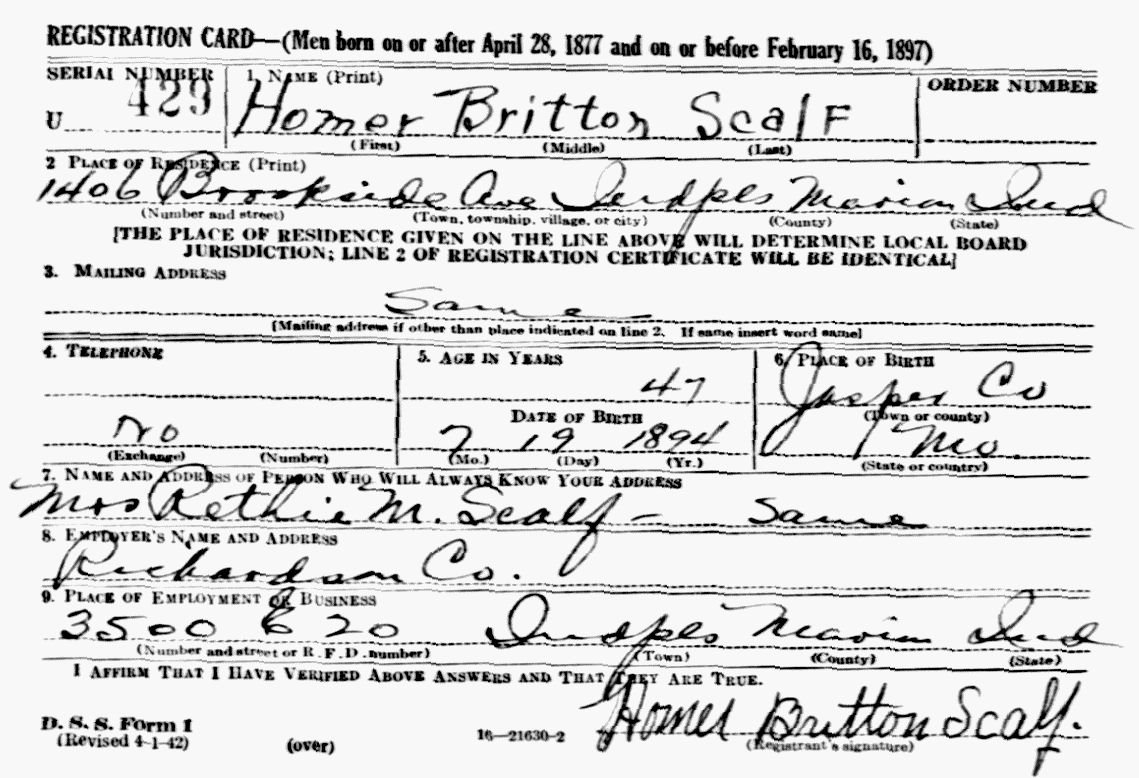 REGISTRATION CARD—(Men born on or after April 28, 1877 and on or before February 16, 1897)
SERIAL NUMBER 1. NAME (Print) ORDER NUMBER
U 429 Homer Britton Scalf
(First) (Middle) (Last)
2 PLACE OF RESIDENCE (Print)
1406 Brookside Ave Indpls Marion Ind
(Number and street) (Town, township, village, or city) (County) (State)
[THE PLACE OF RESIDENCE GIVEN ON THE LINE ABOVE WILL DETERMINE LOCAL BOARD
JURISDICTION; LINE 2 OF REGISTRATION CERTIFICATE WILL BE IDENTICAL]
3. MAILING ADDRESS
Same
[Mailing address if other than place indicated on line 2. If same insert word same]
4. TELEPHONE 5. AGE IN YEARS 6. PLACE OF BIRTH
47 Jasper Co
DATE OF BIRTH (Town or county)
No 7 19 1894 Mo.
(Exchange) (Number) (Mo.) (Day) (Yr.) (State or country)
7. NAME AND ADDRESS OF PERSON WHO WILL ALWAYS KNOW YOUR ADDRESS
Mrs Rethie M. Scalf - Same
8. EMPLOYER'S NAME AND ADDRESS
Richardson Co.
9. PLACE OF EMPLOYMENT OR BUSINESS
3500 E 20 Indpls Marion Ind
(Number and street or R. F. D. number) (Town) (County) (State)
I AFFIRM THAT I HAVE VERIFIED ABOVE ANSWERS AND THAT THEY ARE TRUE.
Homer Britton Scalf.
D. S. S. Form 1
(Revised 4-1-42) (over) 16—21630-2 (Registrant's signature)